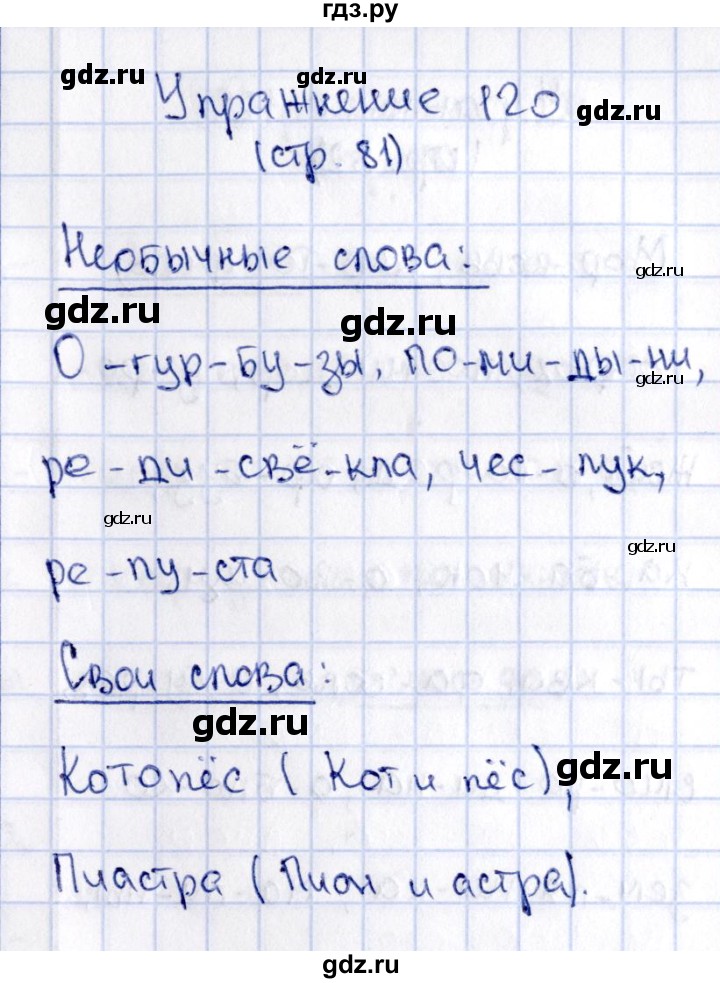 гдз.ру
gdz.ru
Упражнение 120
gdz.ru
(стр. 81)
Необычные слова:
gdz.ru
gdz.ru
gdz.ru
О-гур-бу-зы, по-ми-ды-ни,
gdz.ru
ре-ди-свё-кла, чес-лук,
gdz.ru
gdz.ru
ре-пу-ста
Свои слова:
gdz.ru
Котопёс (Кот и пёс),
gdz.ru
Пиастра (Пион и астра).
gdz.ru